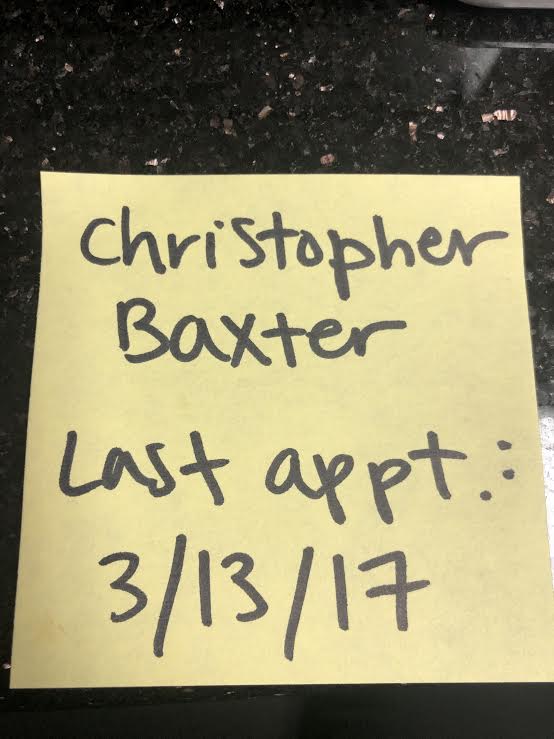 Christopher
Baxter
Last appt.:
3/13/17